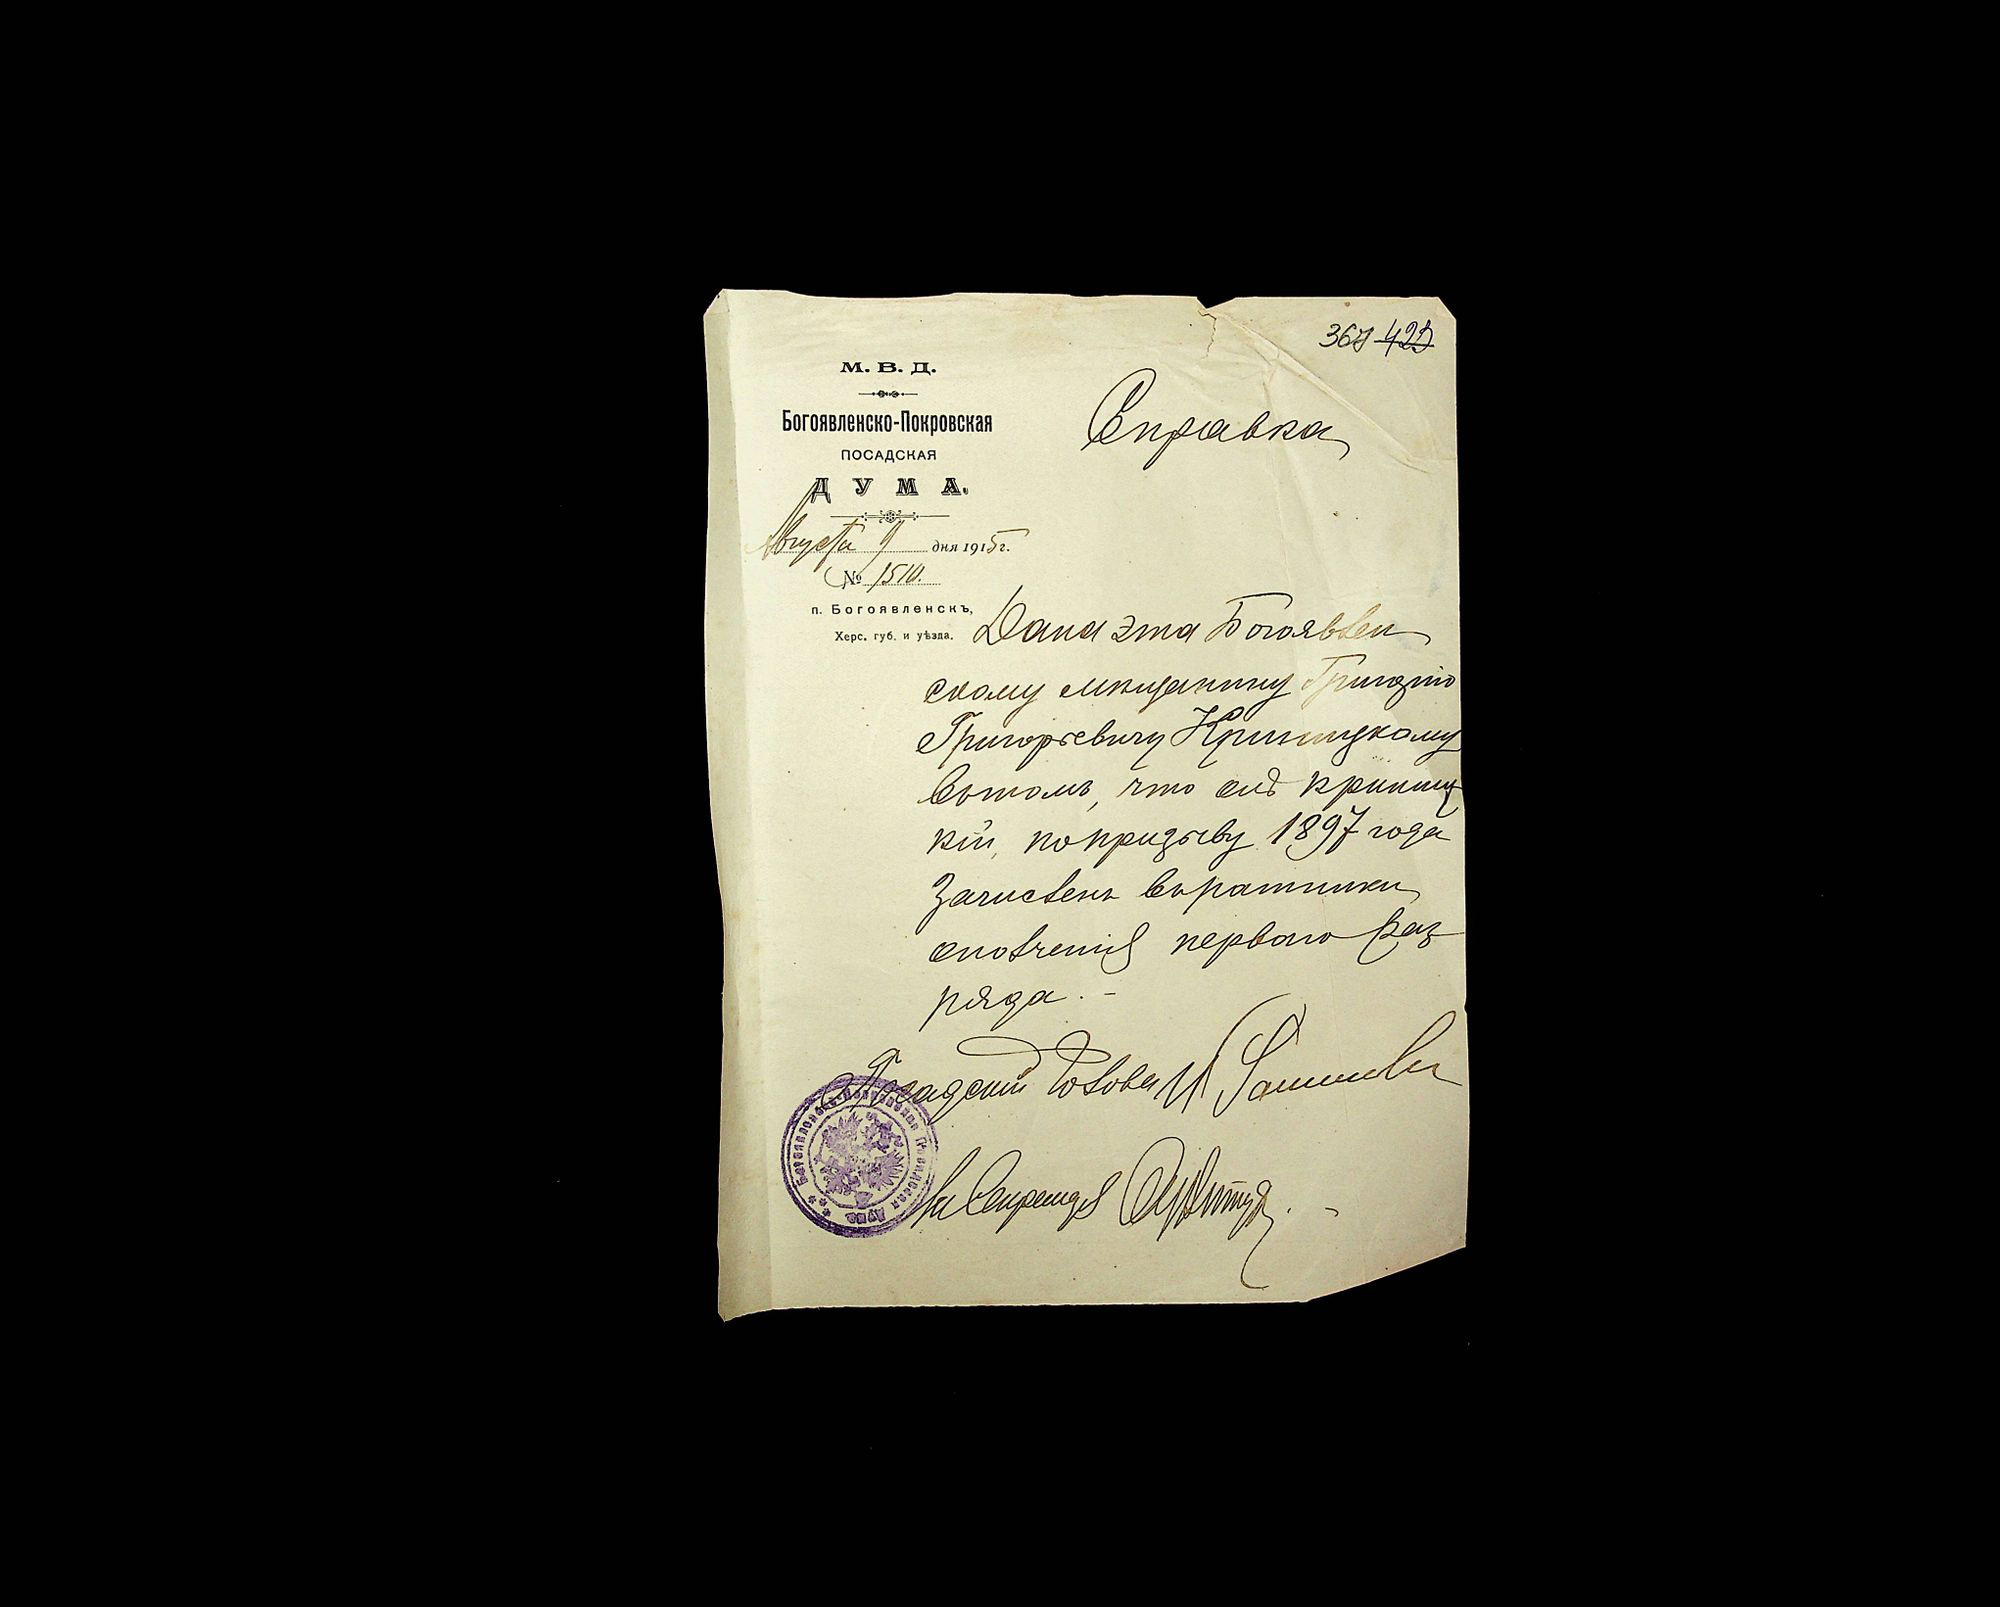 М. В. Д.
Богоявленско-Покровская
ПОСАДСКАЯ
ДУМА.
Августа 9 дня 1915 г.
№ 1510.
п. Богоявленскъ,
Херс. губ. и уѣзда.
367 423
Справка
Дана эта Богоявлен
скому мѣщанину Григорію
Григорьевичу Криницкому
въ томъ, что онъ Криниц
кій, по призыву 1897 года
зачисленъ въ ратники
ополченія перваго раз
ряда. –
Посадскій Голова И
За Секретаря
Богоявленско-Покровская Посадская Дума